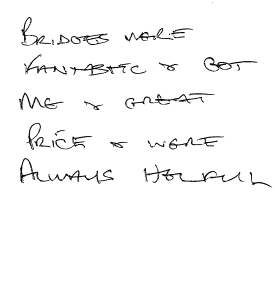 BRIDGES WERE
FANTASTIC & GOT
ME A GREAT
PRICE & WERE
ALWAYS HELPFUL